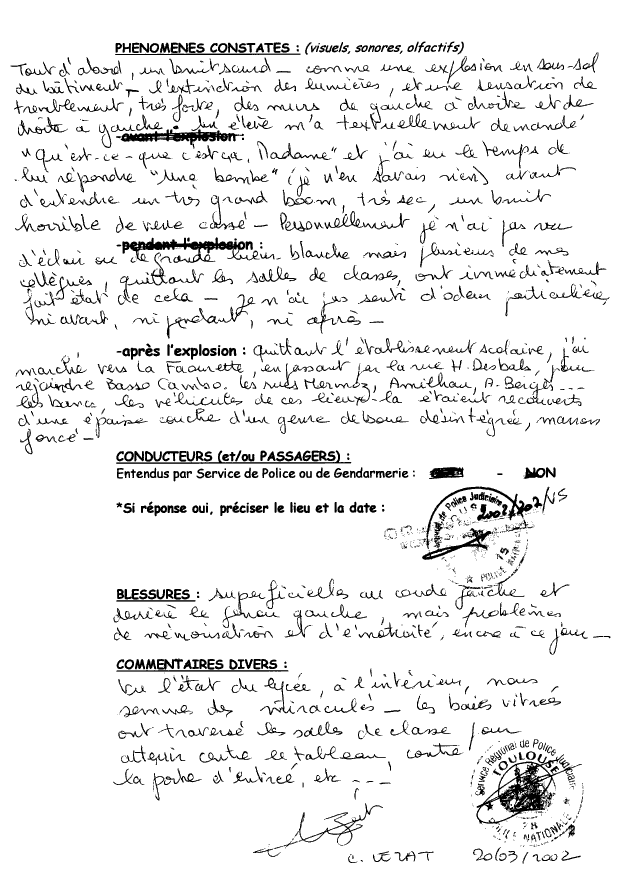 PHENOMENES CONSTATES : (visuels, sonores, olfactifs)
Tout d'abord, un bruit sourd - comme une explosion en sous-sol
du bâtiment - l'extinction des lumières, et une sensation de
tremblement, très forte, des murs de gauche à droite et de
droite à gauche. Un élève m'a textuellement demandé
-avant l'explosion :
"qu'est-ce-que c'est ça, Madame" et j'ai eu le temps de
lui répondre "Une bombe" (je n'en savais rien) avant
d'entendre un très grand boom, très sec, un bruit
horrible de verre cassé - Personnellement je n'ai pas vu
-pendant l'explosion :
d'éclair ou de grande lueur blanche mais plusieurs de mes
collègues, quittant les salles de classes, ont immédiatement
fait état de cela - Je n'ai pas senti d'odeur particulière,
ni avant, ni pendant, ni après -
-après l'explosion : Quittant l'établissement scolaire, j'ai
marché vers la Faourette, en passant par la rue H. Desbals, pour
rejoindre Basso Cambo. Les rues Mermoz, Amilhau, A. Bergès ---
les bancs, les véhicules de ces lieux-là étaient recouverts
d'une épaisse couche d'un genre de boue désintégrée, marron
foncé -
CONDUCTEURS (et/ou PASSAGERS) :
Entendus par Service de Police ou de Gendarmerie : - NON
*Si réponse oui, préciser le lieu et la date :
de Police Judiciaire
2002/202/
15
POLICE NATIONALE
BLESSURES : superficielles au coude gauche et
derrière le genou gauche, mais problèmes
de mémorisation et d'émotivité, encore à ce jour -
COMMENTAIRES DIVERS :
Vu l'état du lycée, à l'intérieur, nous
sommes des miraculés - les baies vitrées
ont traversé les salles de classe pour
atterrir contre le tableau, contre
la porte d'entrée, etc ---
Service Régional de Police Judiciaire
TOULOUSE
POLICE NATIONALE
C. VEZAT 20/03/2002